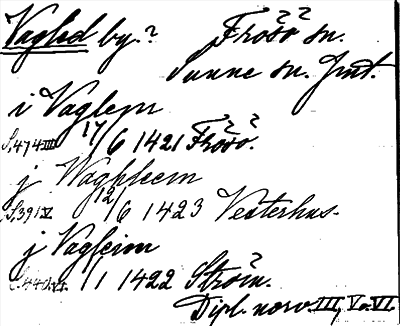 Vagled by.? Frösö sn.
Sunne sn. Jmt.
i Vaglem
S. 474 III 17/6 1421 Frösö.
j Waghleem
S. 391 V 12/6 1423 Vesterhus.
j Vagleim
S. 440 VI 1/1 1422 Ströin.
Dipl. norv. III, V o. VI.